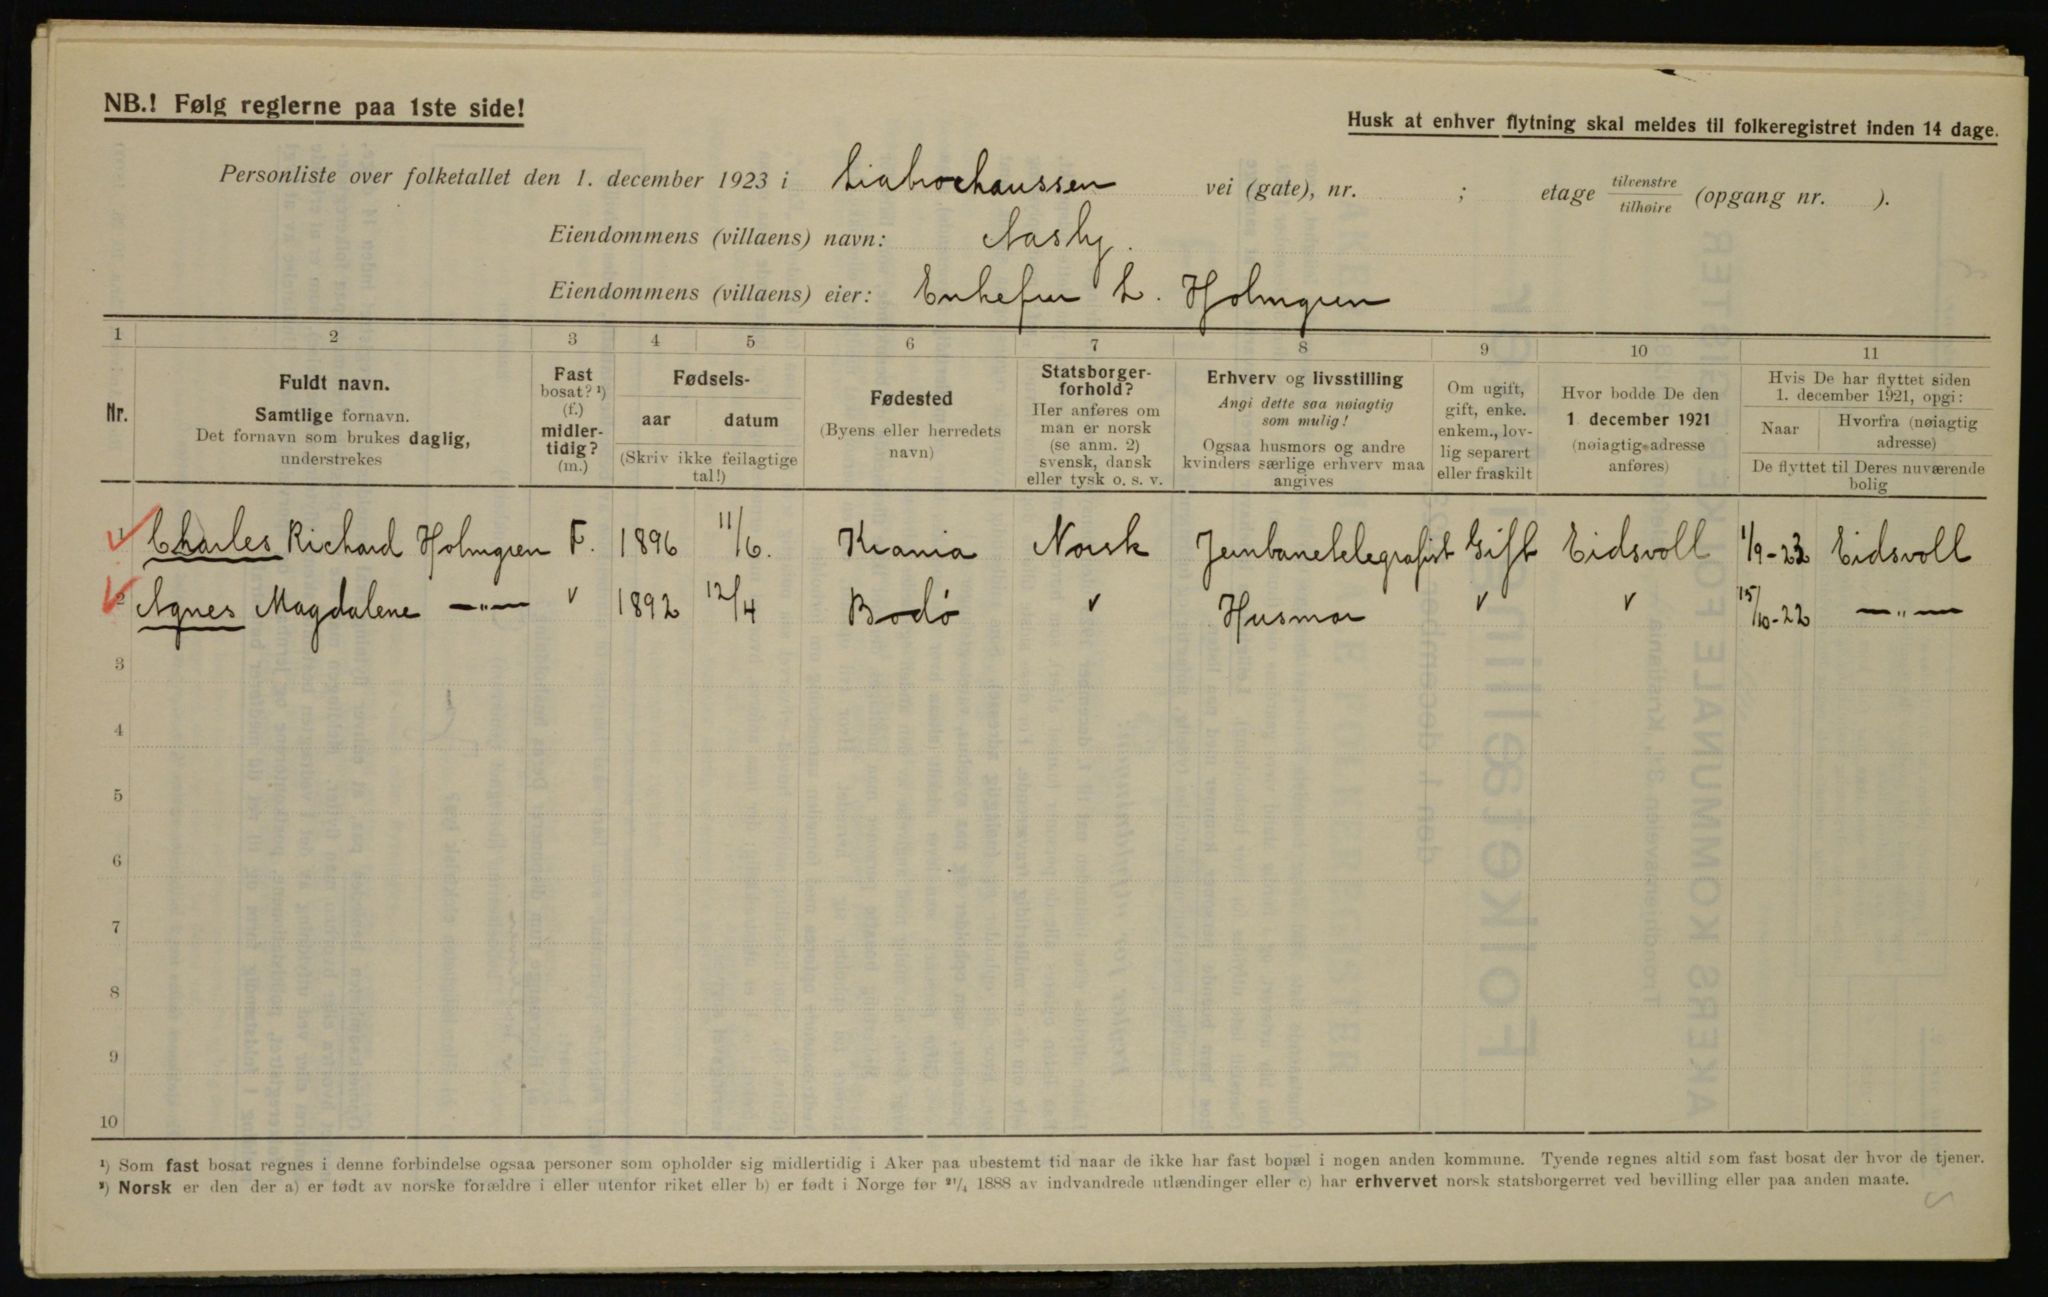 NB.! Følg reglerne paa 1ste side!
Husk at enhver flytning skal meldes til folkeregistret inden 14 dage.
Personliste over folketallet den 1. december 1923 i Liabrochaussen vei (gate), nr. ; etage tilvenstre tilhøire (opgang nr. ).
Eiendommens (villaens) navn:
Eiendommens (villaens) eier: Enkefru L. Holmgren
1 2 3 4 5 6 7 8 9 10 11
Nr.
Fuldt navn.
Samtlige fornavn.
Det fornavn som brukes daglig,
understrekes
Fast
bosat? ¹)
(f.)
midler-
tidig?
(m.)
Fødsels-
aar datum
(Skriv ikke feilagtige
tal!)
Fødested
(Byens eller herredets
navn)
Statsborger-
forhold?
Her anføres om
man er norsk
(se anm. 2)
svensk, dansk
eller tysk o. s. v.
Erhverv og livsstilling
Angi dette saa nøiagtig
som mulig!
Ogsaa husmors og andre
kvinders særlige erhverv maa
angives
Om ugift,
gift, enke.
enkem., lov-
lig separert
eller fraskilt
Hvor bodde De den
1 december 1921
(nøiagtig adresse
anføres)
Hvis De har flyttet siden
1. december 1921, opgi:
Naar Hvorfra (nøiagtig
adresse)
De flyttet til Deres nuværende
bolig
1 Charles Richard Holmgren F. 1896 11/6. Krania Norsk Jernbanetelegrafist Gift Eidsvoll 1/9-23 Eidsvoll
2 Agnes Magdalene —„— v 1892 12/4 Bodø v Husmor v v 15/10-22 —„—
3
4
5
6
7
8
9
10
¹) Som fast bosat regnes i denne forbindelse ogsaa personer som opholder sig midlertidig i Aker paa ubestemt tid naar de ikke har fast bopæl i nogen anden kommune. Tyende regnes altid som fast bosat der hvor de tjener.
²) Norsk er den der a) er født av norske forældre i eller utenfor riket eller b) er født i Norge før ²¹/₄ 1888 av indvandrede utlændinger eller c) har erhvervet norsk statsborgerret ved bevilling eller paa anden maate.